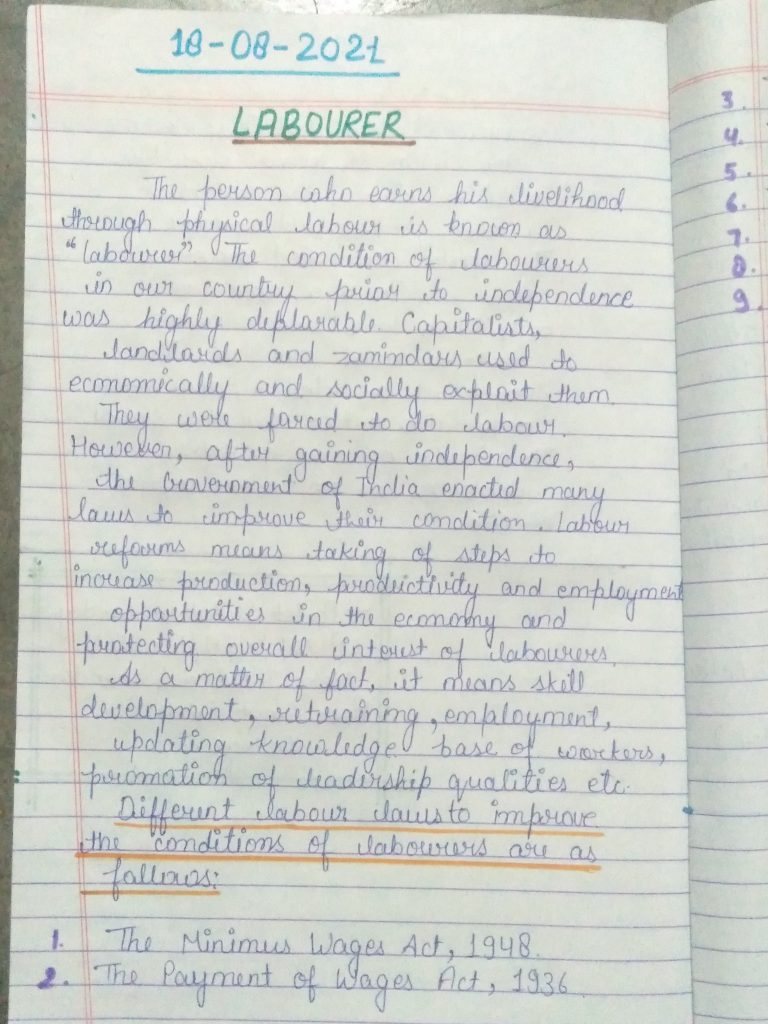 18-08-2021
LABOURER
The person who earns his livelihood
through physical labour is known as
"labourer" The condition of labourers
in our country prior to independence
was highly deplorable. Capitalists,
landlords and zamindars used to
economically and socially exploit them.
They were forced to do labour.
However, after gaining independence,
the Government of India enacted many
laws to improve their condition. Labour
reforms means taking of steps to
increase production, productivity and employment
opportunities in the economy and
protecting overall interest of labourers.
As a matter of fact, it means skill
development, retraining, employment,
updating knowledge base of workers,
promotion of leadership qualities etc.
Different labour laws to improve
the conditions of labourers are as
follows:
1. The Minimus Wages Act, 1948.
2. The Payment of Wages Act, 1936
3.
4.
5.
6.
7.
8.
9.